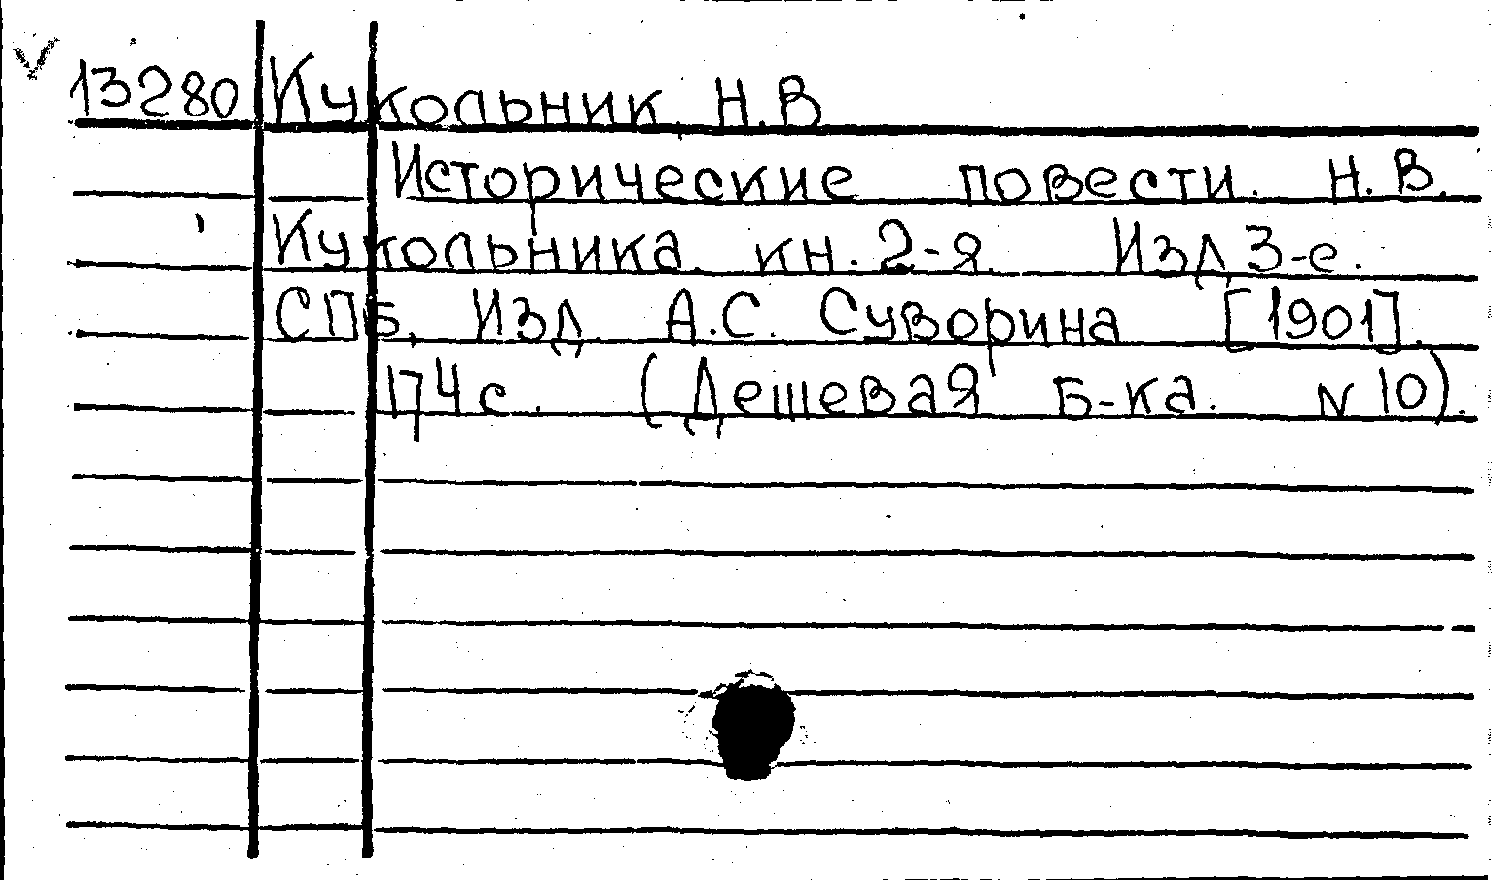 13280 Кукольник, Н.В.
Исторические повести Н.В.
Кукольника. кн. 2-я. Изд 3-е.
СПб, Изд. А.С. Суворина [1901].
174 с. (Дешевая Б-ка. N 10).